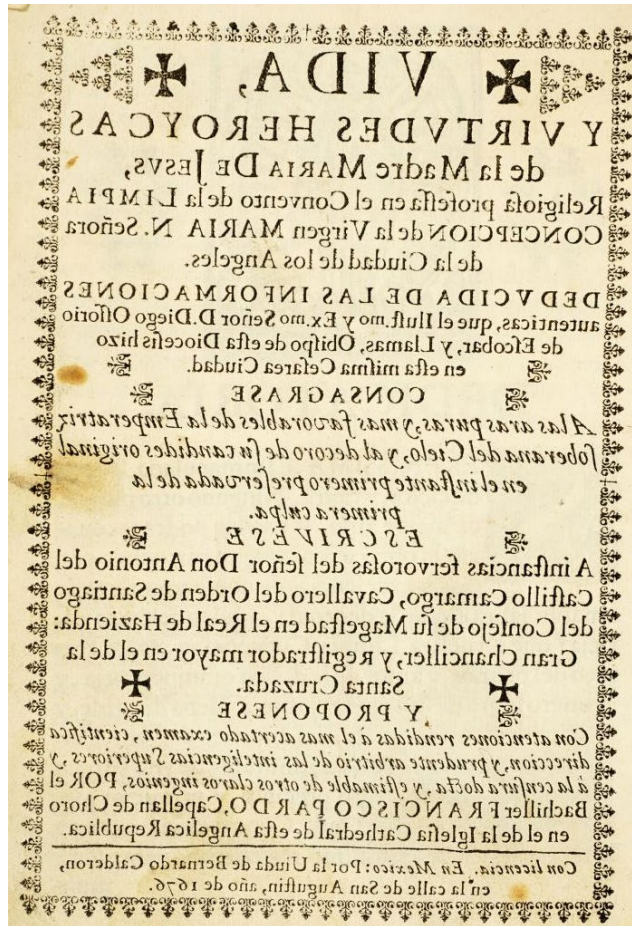 VIDA,
Y VIRTVDES HEROYCAS
de la Madre MARIA DE JESVS,
Religioſa profeſſa en el Convento de la LIMPIA
CONCEPCION de la Virgen MARIA N. Señora
de la Ciudad de los Angeles.
DEDVCIDA DE LAS INFORMACIONES
autenticas, que el Illuſt.mo y Ex.mo Señor D. Diego Oſſorio
de Eſcobar, y Llamas, Obiſpo de eſta Dioceſis hizo
en eſta miſma Ceſarea Ciudad.
CONSAGRASE
A las aras puras, y mas favorables de la Emperatriz
ſoberana del Cielo, y al decoro de ſu candides original
en el inſtante primero preſervada de la
primera culpa.
ESCRIVESE
A inſtancias fervoroſas del ſeñor Don Antonio del
Caſtillo Camargo, Cavallero del Orden de Santiago
del Conſejo de ſu Mageſtad en el Real de Hazienda:
Gran Chanciller, y Regiſtrador mayor en el de la
Santa Cruzada.
Y PROPONESE
Con atenciones rendidas à el mas acertado examen, cientifica
direccion, y prudente arbitrio de las inteligencias Superiores, y
à la cenſura docta, y eſtimable de otros claros ingenios, POR el
Bachiller FRANCISCO PARDO, Capellan de Choro
en el de la Igleſia Cathedral de eſta Angelica Republica.
Con licencia. En Mexico: Por la Uiuda de Bernardo Calderon,
en la calle de San Auguſtin, año de 1676.